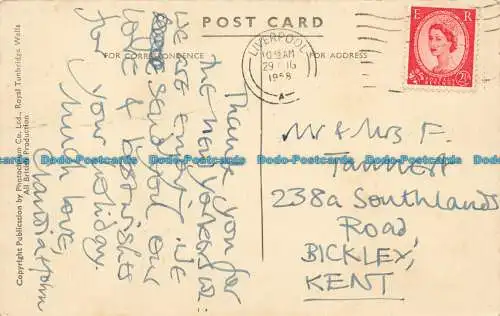 POST CARD
FOR CORRESPONDENCE
FOR ADDRESS
LIVERPOOL
10 15 AM
1958
A
E R
POSTAGE
REVENUE
2½
Copyright Publication by Photochrom Co., Ltd., Royal Tunbridge Wells
All British Production.
Thank you for
the new yorkers w:
we are enjoying. We
send you our
love & best wishes
for your holiday.
Much love,
Mr & Mrs F.
Tannett
238a Southlands
Road,
BICKLEY,
KENT
Dodo-Postcards Dodo-Postcards Dodo-Postcards Dodo-Postcards